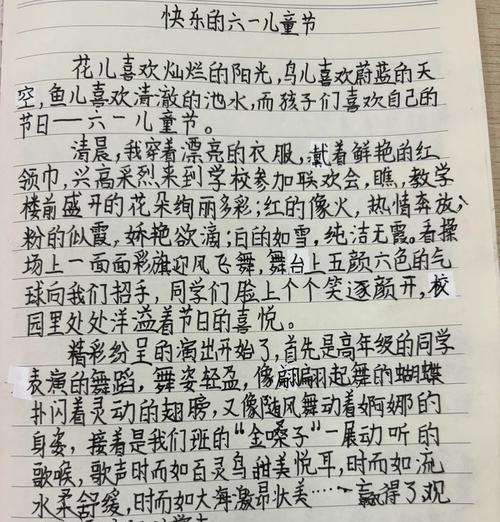 快乐的六一儿童节
花儿喜欢灿烂的阳光,鸟儿喜欢蔚蓝的天
空,鱼儿喜欢清澈的池水,而孩子们喜欢自己的
节日——六一儿童节。
清晨,我穿着漂亮的衣服,戴着鲜艳的红
领巾,兴高采烈来到学校参加联欢会,瞧,教学
楼前盛开的花朵绚丽多彩;红的像火,热情奔放,
粉的似霞,娇艳欲滴;白的如雪,纯洁无霞。看操
场上一面面彩旗迎风飞舞,舞台上五颜六色的气
球向我们招手,同学们脸上个个笑逐颜开,校
园里处处洋溢着节日的喜悦。
精彩纷呈的演出开始了,首先是高年级的同学
表演的舞蹈,舞姿轻盈,像翩翩起舞的蝴蝶
扑闪着灵动的翅膀,又像随风舞动着婀娜的
身姿,接着是我们班的“金嗓子”一展动听的
歌喉,歌声时而如百灵鸟甜美悦耳,时而如流
水柔舒缓,时而如大海激昂壮美……赢得了观